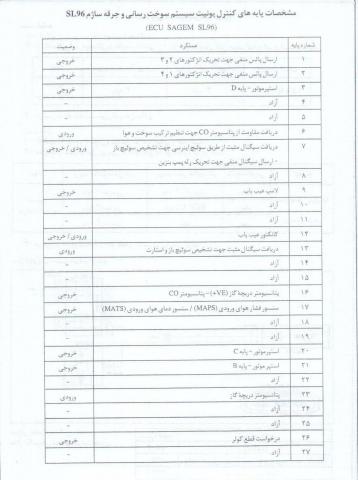 مشخصات پایه های کنترل یونیت سیستم سوخت رسانی و جرقه ساژم SL96
(ECU SAGEM SL96)
شماره پایه عملکرد وضعیت
۱ ارسال پالس منفی جهت تحریک انژکتورهای ۲ و ۳ خروجی
۲ ارسال پالس منفی جهت تحریک انژکتورهای ۱ و ۴ خروجی
۳ استپرموتور - پایه D خروجی
۴ آزاد -
۵ آزاد -
۶ دریافت مقاومت از پتانسیومتر CO جهت تنظیم ترکیب سوخت و هوا ورودی
۷ دریافت سیگنال مثبت از طریق سوئیچ اینرسی جهت تشخیص سوئیچ باز ورودی / خروجی
- ارسال سیگنال منفی جهت تحریک رله پمپ بنزین
۸ آزاد -
۹ لامپ عیب یاب خروجی
۱۰ آزاد -
۱۱ آزاد -
۱۲ کانکتور عیب یاب ورودی / خروجی
۱۳ دریافت سیگنال مثبت جهت تشخیص سوئیچ باز و استارت ورودی
۱۴ آزاد -
۱۵ آزاد -
۱۶ پتانسیومتر دریچه گاز (+VE) - پتانسیومتر CO خروجی
۱۷ سنسور فشار هوای ورودی (MAPS) / سنسور دمای هوای ورودی (MATS) خروجی
۱۸ آزاد -
۱۹ آزاد -
۲۰ استپرموتور - پایه C خروجی
۲۱ استپر موتور - پایه B خروجی
۲۲ آزاد -
۲۳ پتانسیومتر دریچه گاز ورودی
۲۴ آزاد -
۲۵ آزاد -
۲۶ درخواست قطع کولر خروجی
۲۷ آزاد -